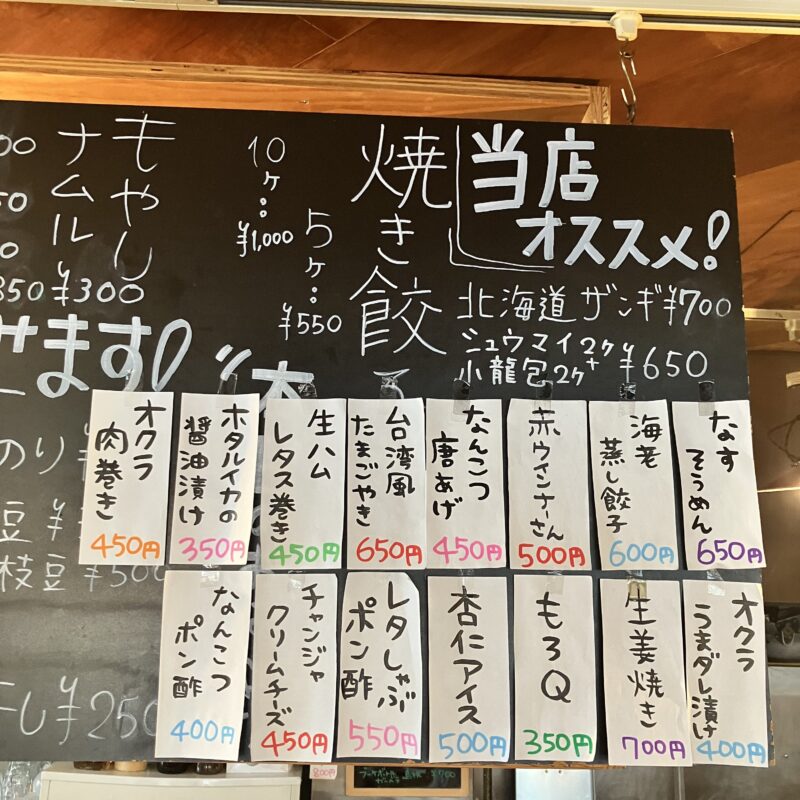 当店
オススメ!
北海道ザンギ¥700
シュウマイ2ケ+
小龍包2ケ
¥650
焼き餃子
5ケ:¥550
10ケ:¥1,000
もやし
ナムル
¥300
850
せます!
のり¥
豆¥
枝豆¥500
干し¥250
なす
そうめん
650円
海老
蒸し餃子
600円
赤ウインナーさん
500円
なんこつ
唐あげ
450円
台湾風
たまごやき
650円
生ハム
レタス巻き
450円
ホタルイカの
醤油漬け
350円
オクラ
肉巻き
450円
オクラ
うまダレ漬け
400円
生姜焼き
700円
もろQ
350円
杏仁アイス
500円
レタしゃぶ
ポン酢
550円
チャンジャ
クリームチーズ
450円
なんこつ
ポン酢
400円
800円
¥700